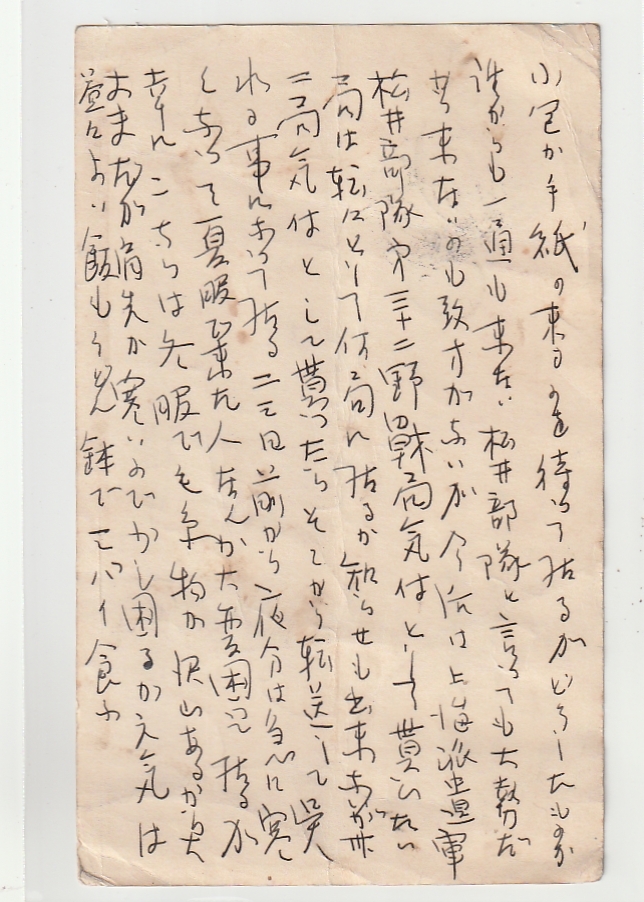 小包か手紙の来るのを待つて居るがどうしたものか
誰からも一通も来ない松井部隊と言つても大勢だ
から来ないのも致方がないが今后は上海派遣軍
松井部隊第三十二野戦局気付として貰ひたい
局は転々として何局に居るか知らせも出来ないが卅
二局気付として貰つたらそこから転送して呉
れる事になつて居る二三日前から夜分は急に寒
くなつて夏服で来た人なんか大変困つて居るが
幸にこちらは冬服でも糸物が沢山あるから大
丈夫だが肩先が寒いので少し困るが元気は
益々よい飯もうどん鉢で二ハイ食ふ